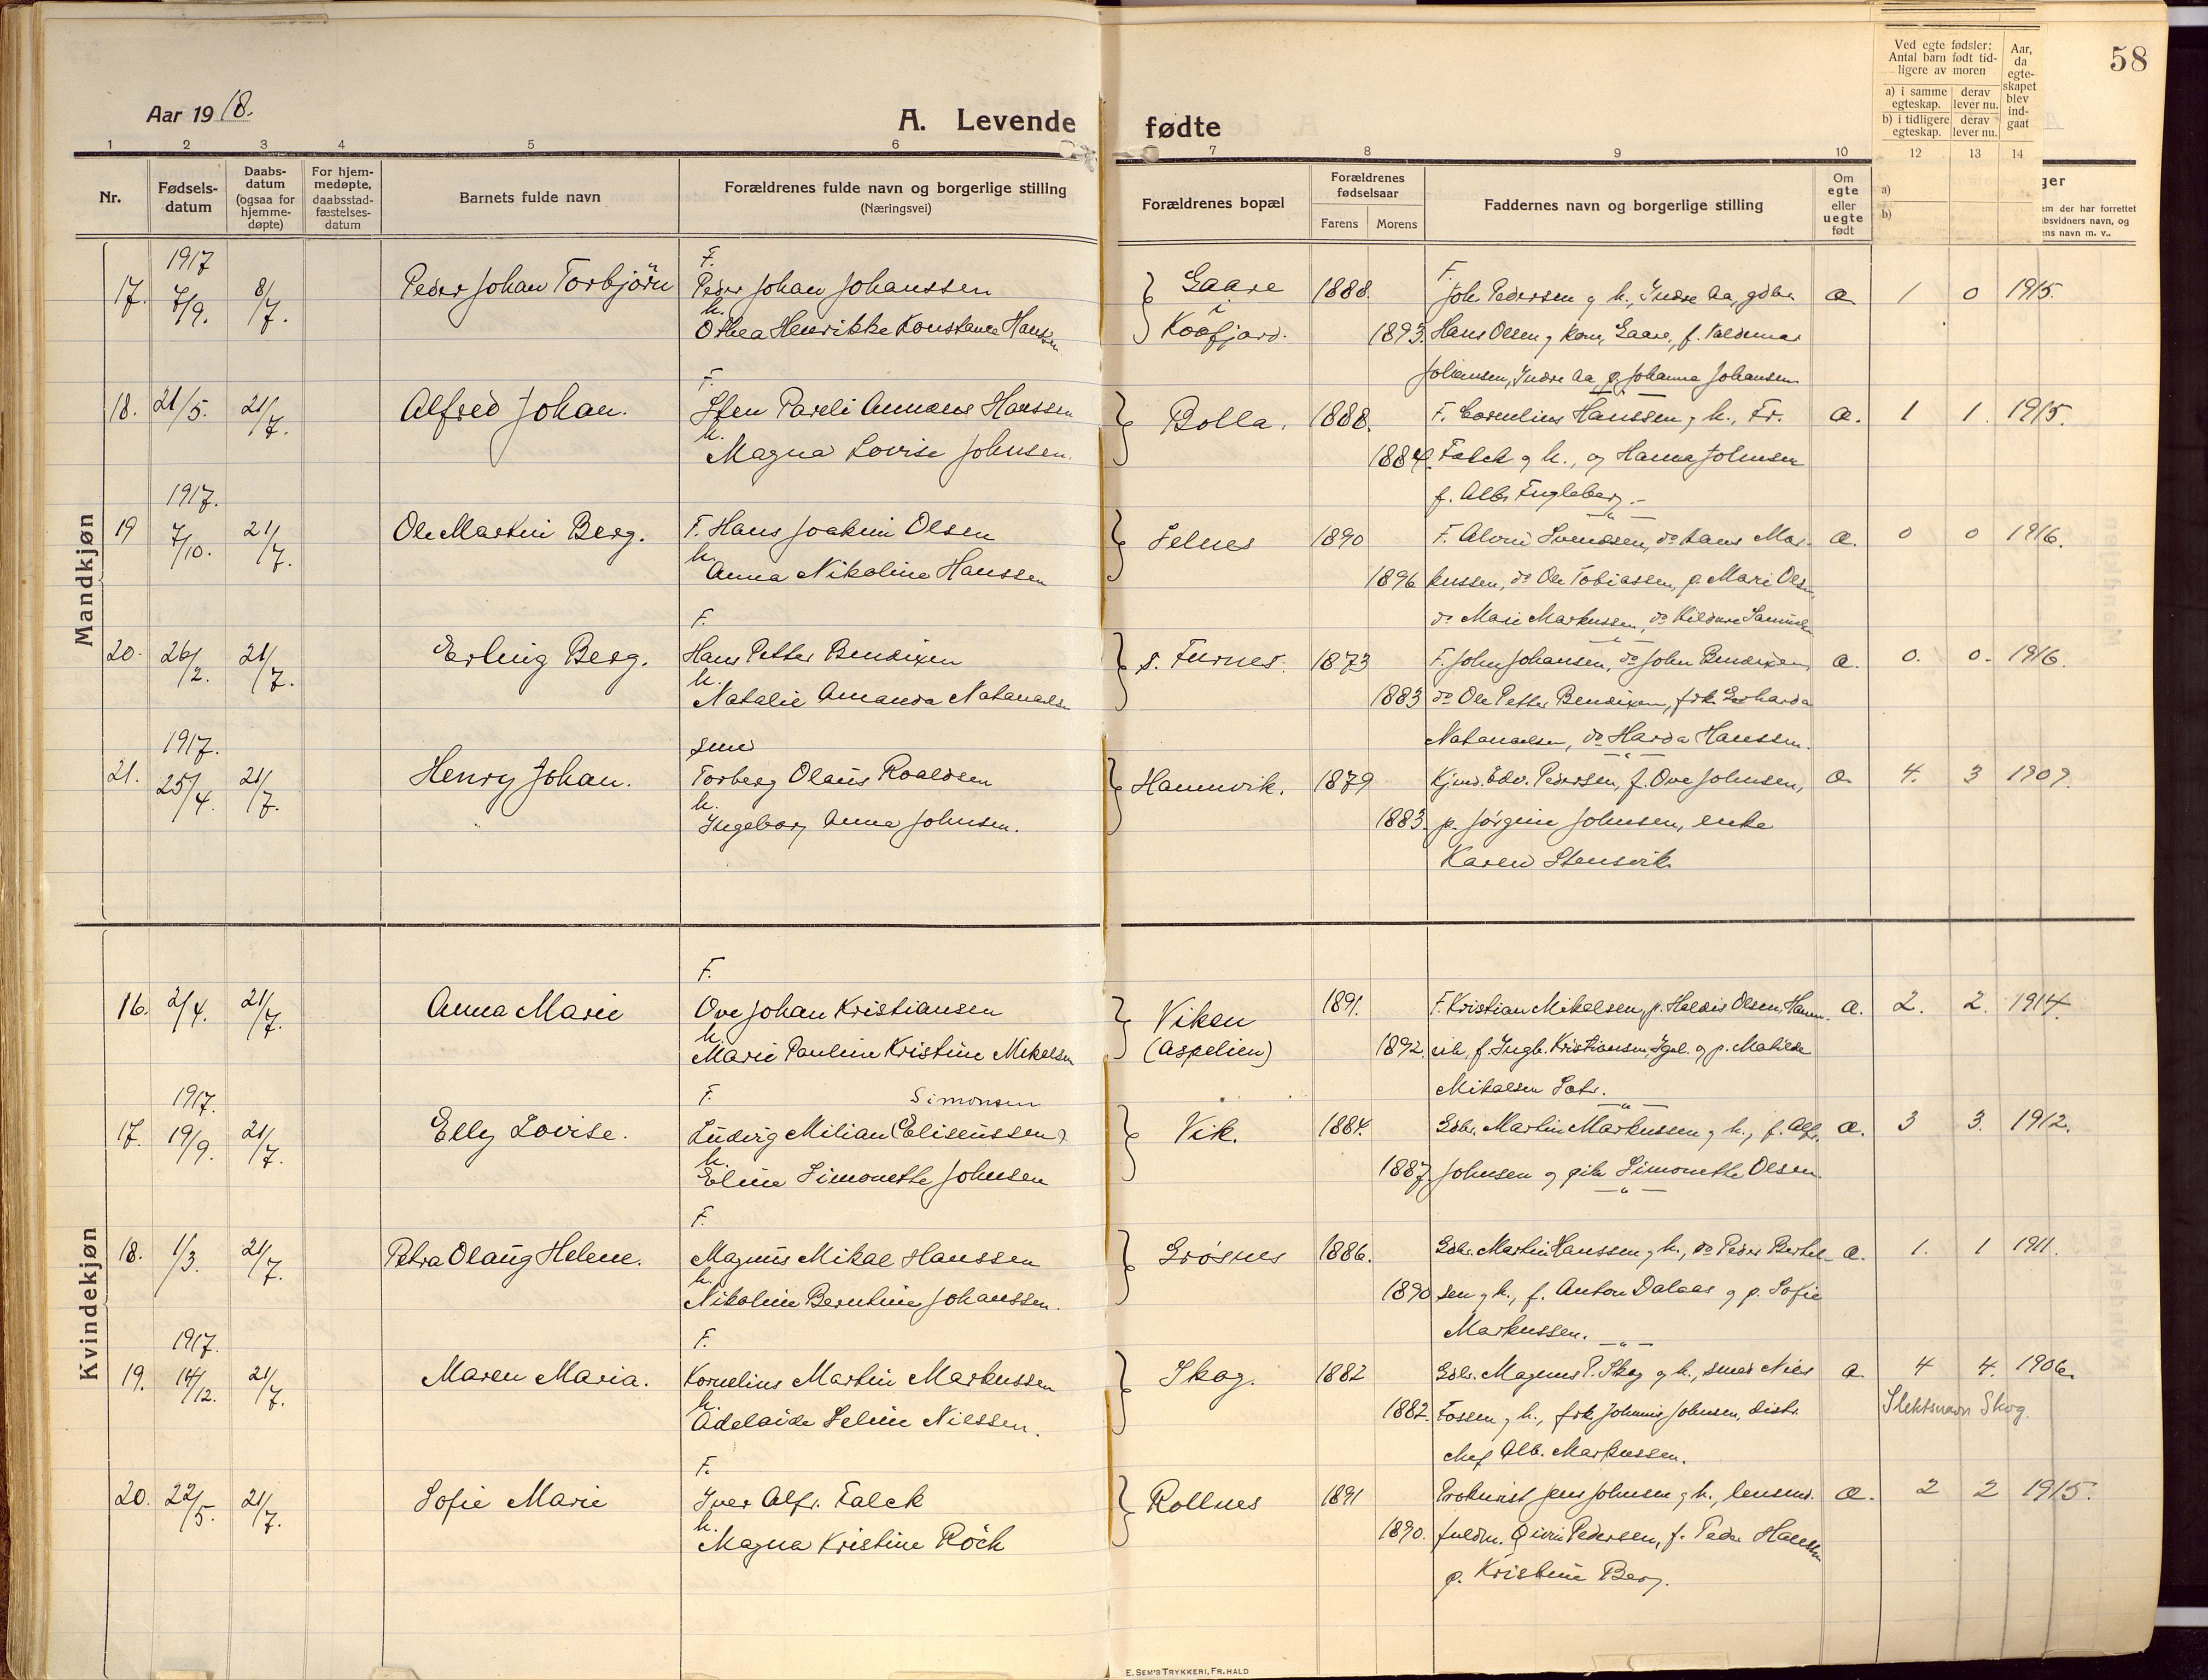 Aar 1918.
A. Levende fødte
58
Ved egte fødsler: Antal barn født tidligere av moren
a) i samme egteskap.
derav lever nu.
b) i tidligere egteskap.
derav lever nu.
Aar, da egteskapet blev indgaat
1 2 3 4 5 6 7 8 9 10 12 13 14
Nr.
Fødselsdatum
Daabsdatum (ogsaa for hjemmedøpte)
For hjemmedøpte, daabsstadfæstelsesdatum
Barnets fulde navn
Forældrenes fulde navn og borgerlige stilling
(Næringsvei)
Forældrenes bopæl
Forældrenes fødselsaar
Farens Morens
Faddernes navn og borgerlige stilling
Om egte eller uegte født
a)
b)
ger
em der har forrettet
bsvidners navn, og
ens navn m. v..
Mandkjøn
1917 F. F.
17. 7/9. 8/7. Peder Johan Torbjörn Peder Johan Johanssen Gaare 1888. Joh. Pedersen g h., Indre Aa, gdbr. æ 1 0 1915.
h. i
Othea Henrikke Konstance Hanssen Kåfjord. 1893. Hans Olsen g Kone, Gaare, f. Valdemar
F. Johansen, Indre Aa, p. Johanna Johansen
18. 21/5. 21/7. Alfred Johan. Sten Pareli Annæus Hanssen Bolla. 1888. F. Cornelius Hanssen g h., Fr. æ. 1 1. 1915.
h.
Magna Lovise Johnsen. 1884. Falck g h., og Hanna Johnsen
1917. f. Alb. Fugleberg.
19 7/10. 21/7. Ole Martin Berg. F. Hans Joakim Olsen Selnes 1890 F. Alvin Svendsen, do Hans Mar- æ. 0 0 1916.
h.
Anna Nikoline Hanssen 1896 kussen, do Ole Tobiassen, p. Mari Olsen,
F. do Mari Markussen, do Hildure Samuelsen
20. 26/2. 21/7. Erling Berg. Hans Petter Bendixen S. Furnes. 1873 F. John Johansen, do John Bendixen æ. 0. 0. 1916.
h.
Natalie Amanda Natanaelsen 1883 do Ole Petter Bendixen, frk. Gerharda
1917. smed Natanaelsen, do Harda Hanssen.
21. 25/4. 21/7. Henry Johan. Torberg Olaus Roaldsen Hamnvik. 1879 Kjmd. Edv. Pedersen, f. Ove Johnsen, æ 4. 3 1909.
h.
Ingeborg Anna Johnsen. 1883. p. Jørgine Johnsen, enke
Karen Stensvik
Kvindekjøn
F.
16. 2/4. 21/7. Anna Marie Ove Johan Kristiansen Viken 1891. F. Kristian Mikelsen, p. Haldis Olsen, Hamn- æ. 2. 2. 1914.
h.
Marie Pauline Kristine Mikelsen (Aspelien) 1892. vik, f. Ingb. Kristiansen, Igel. og p. Matilde
1917. F. Simonsen Mikalsen Sætr.
17. 19/9. 21/7. Elly Lovise. Ludvig Milian (Eliseussen) Vik. 1884. Gdbr. Martin Markussen g h., f. Alfr. æ. 3 3. 1912.
h.
Eline Simonette Johnsen 1887 Johnsen g pike Simonette Olsen.
F.
18. 1/3. 21/7. Petra Olaug Helene. Magnus Mikal Hanssen Grøsnes 1886. Gdbr. Martin Hanssen g h., do Peder Bertel- æ. 1. 1 1911.
h.
Nikoline Berntine Johanssen. 1890 sen g h., f. Anton Dalaas g p. Sofie
1917. F. Markussen.
19. 14/12. 21/7. Maren Maria. Kornelius Martin Markussen Skog. 1882 Gdbr. Magnus P. Skog g h., smed Nils æ 4 4. 1906.
h.
Adelaide Seline Nilssen. 1882. Fossen g h., frk. Johanne Johnsen, distr. Slektsnavn Skog.
F. chef Alb. Markussen.
20. 22/5. 21/7. Sofie Marie Iver Alfr. Falck Rollnes 1891 Prokurist Jens Johnsen g h., lensmd. æ. 2 2 1915.
h.
Magna Kristine Röck 1890. fuldm. Pedersen, f. Peder Hanssen
p. Kristine Berg.
E. SEM'S TRYKKERI, FR. HALD